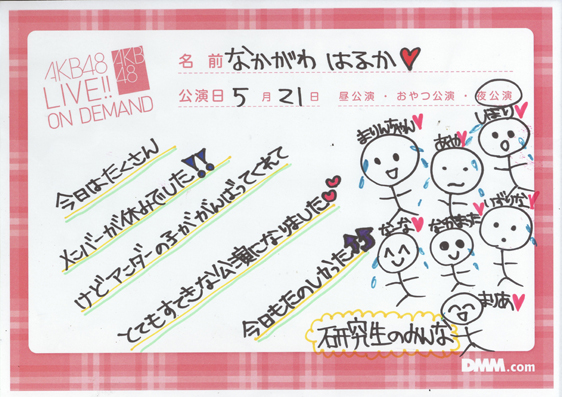 AKB48
LIVE!!
ON DEMAND
AKB
48
名 前 なかがわ はるか♥
公演日 5 月 21 日 昼公演・おやつ公演・夜公演
今日はたくさん
メンバーが休みでした!!
けどアンダーの子ががんばってくれて
とてもすてきな公演になりました♥♥
今日もたのしかった♪♪
まりんちゃん♥
あや♥
しほり♥
なな♥
なかまた♥
しずりな♥
まりあ♥
研究生のみんな
DMM.com